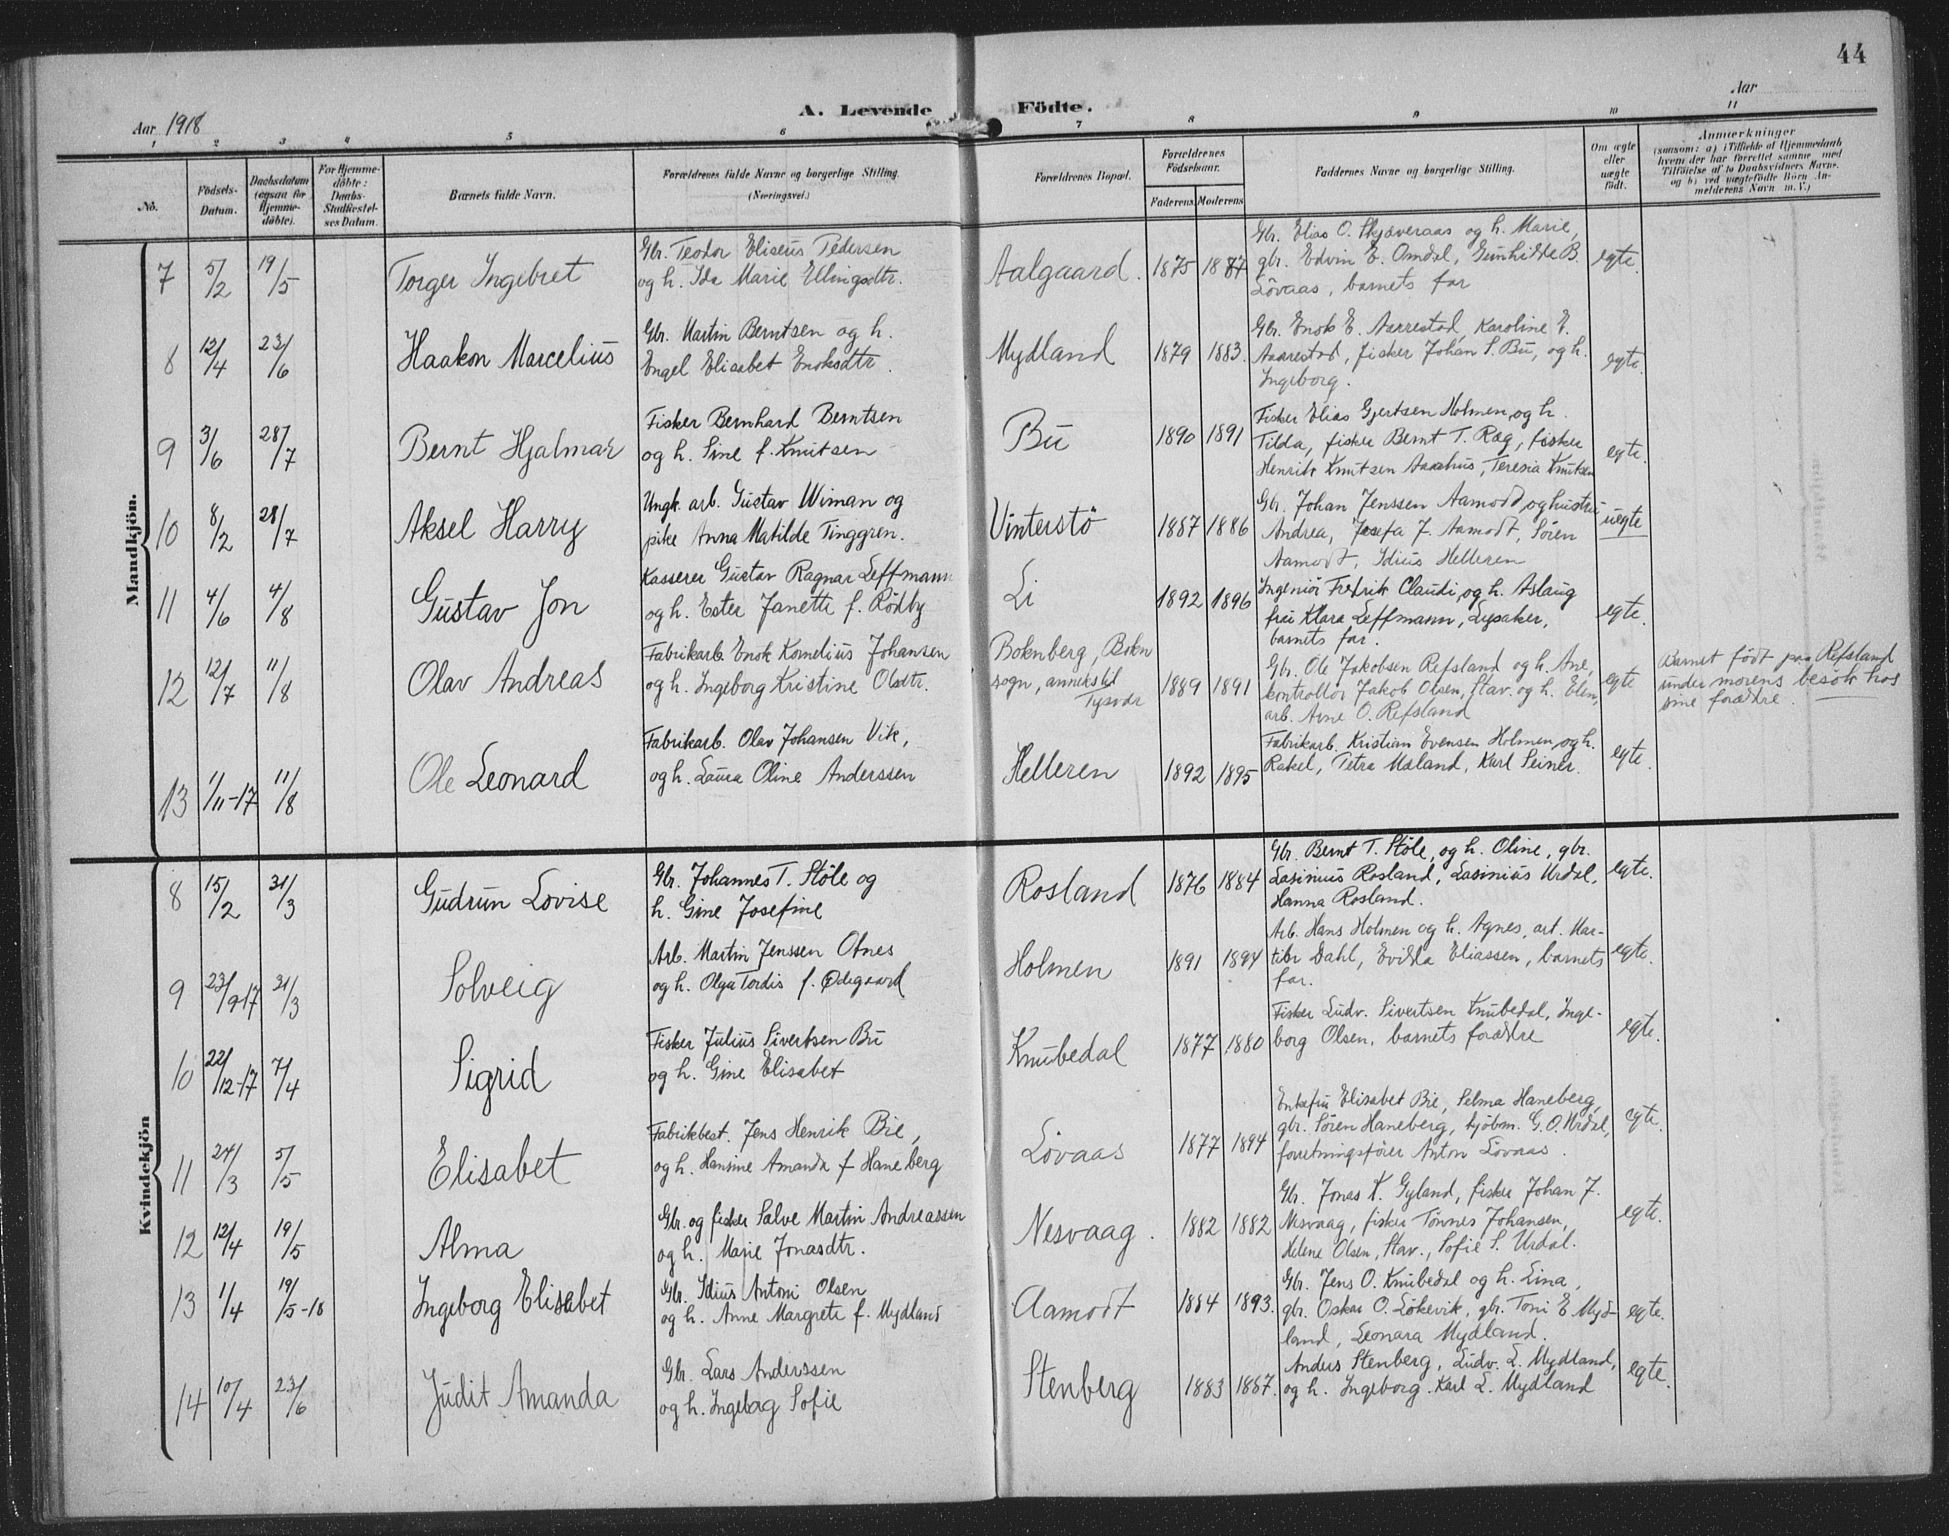 44
Aar 1918
A. Levende Födte.
Aar
1 2 3 4 5 6 7 8 9 10 11
No.
Födsels-Datum.
Daabsdatum (ogsaa for Hjemme-döbte).
For Hjemme-döbte: Daabs-Stadfæstel-ses Datum.
Barnets fulde Navn.
Forældrenes fulde Navne og borgerlige Stilling. (Næringsvei.)
Forældrenes Bopæl.
Forældrenes Födselsaar.
Faderens Moderens
Faddernes Navne og borgerlige Stilling.
Om ægte eller uægte födt.
Anmærkninger
(saasom: a) i Tilfælde af Hjemmedaab
hvem der har forrettet samme med
Tilföielse af to Daabsvidners Navne.
og b) ved uægtefödte Börn An-
melderens Navn m. V.)
Mandkjön.
7 5/2 19/5 Torger Ingebret
Gbr. Teodor Eliseus Pedersen
og h. Ida Marie Ellingsdtr.
Aalgaard. 1875 1887
Gbr. Elias O. Skjæveraas og h. Marie,
gbr. Edvin E. Omdal, Gunhilde B.
Lövaas, barnets far
egte.
8 12/4 23/6 Haakon Marcelius
Gbr. Martin Berntsen og h.
Engel Elisabet Enoksdtr.
Mydland 1879 1883.
Gbr. Enok E. Aarrestad, Karoline E.
Aarrestad, fisker Johan S. Bu, og h.
Ingeborg.
egte.
9 3/6 28/7 Bernt Hjalmar
Fisker Bernhard Berntsen
og h. Sine f. Knutsen
Bu 1890 1891
Fisker Elias Gjertsen Holmen og h.
Tilda, fisker Bernt T. Ræg, fisker
Henrik Knutsen Aarhus, Teresia Knutsen
egte.
10 8/2 28/7 Aksel Harry
Ungk. arb. Gustav Wiman og
pike Anna Matilde Tinggren.
Vinterstö 1887 1886
Gbr. Johan Jenssen Aamodt og hustru
Andrea, Josefa J. Aamodt, Sören
Aamodt, Idius Helleren
uegte
11 4/6 4/8 Gustav Jon
Kasserer Gustav Ragnar Leffmann
og h. Ester Janette f. Rödby
Li 1892 1896
Ingeniör Fredrik Claudi, og h. Aslaug
frøi Klara Leffmann, Lysaker,
barnets far.
egte.
12 12/7 11/8 Olav Andreas
Fabrikarb. Enok Kornelius Johansen
og h. Ingeborg Kristine Olsdtr.
Boknberg, Bokn
sogn, anneks til
Tysvær
1889 1891
Gbr. Ole Jakobsen Refsland og h. Ane,
kontrollör Jakob Olsen, Stav. og h. Elen,
arb. Arne O. Refsland
egte
Barnet födt paa Refsland
under morens besök hos
sine forældre.
13 1/11-17 11/8 Ole Leonard
Fabrikarb. Olav Johansen Vik,
og h. Laura Oline Anderssen
Helleren 1892 1895
Fabrikarb. Kristian Evensen Holmen og h.
Rakel, Petra Mæland, Karl Seiner.
egte.
Kvindekjön
8 15/2 31/3 Gudrun Lovise
Gbr. Johannes T. Støle og
h. Gine Josefine
Rosland 1876 1884
Gbr. Bernt T. Støle, og h. Oline, gbr.
Lasinius Rosland, Lasinius Urdal,
Hanna Rosland.
egte.
9 23/9-17 31/3 Solveig
Arb. Martin Jenssen Otnes
og h. Olga Tordis f. Ødegaard
Holmen 1891 1894
Arb. Hans Holmen og h. Agnes, art. Mar-
tibr Dahl, Evilda Eliassen, barnets
far.
egte.
10 22/12-17 7/4 Sigrid
Fisker Julius Sivertsen Bu
og h. Gine Elisabet
Knubedal 1877 1880
Fisker Ludv. Sivertsen Knubedal, Inge-
borg Olsen, barnets forældre
egte.
11 24/3 5/5 Elisabet
Fabrikbest. Jens Henrik Bie,
og h. Hansine Amanda f Haneberg
Lövaas 1877 1894
Enkefru Elisabet Bie, Selma Haneberg,
gbr. Sören Haneberg, kjöbm. G. O. Urdal,
forretningsfører Anton Lövaas.
egte.
12 12/4 19/5 Alma
Gbr. og fisker Salve Martin Andreassen
og h. Marie Jonasdtr.
Nesvaag. 1882 1882
Gbr. Jonas K. Gyland, fisker Johan J.
Nesvaag, fisker Tönnes Johansen,
Helene Olsen, Stav., Sofie S. Urdal.
egte.
13 1/4 19/5-18 Ingeborg Elisabet
Gbr. Idius Antoni Olsen
og h. Anne Margrete f. Mydland
Aamodt 1884 1893.
Gbr. Jens O. Knubedal og h. Lina,
gbr. Oskar O. Lökevik, gbr. Toni E Myd-
land, Leonara Mydland.
egte.
14 10/4 23/6 Judit Amanda
Gbr. Lars Anderssen
og h. Ingeborg Sofie
Stenberg 1883 1887.
Anders Stenberg, Ludv. L. Mydland,
og h. Ingeborg. Karl L. Mydland
egte.